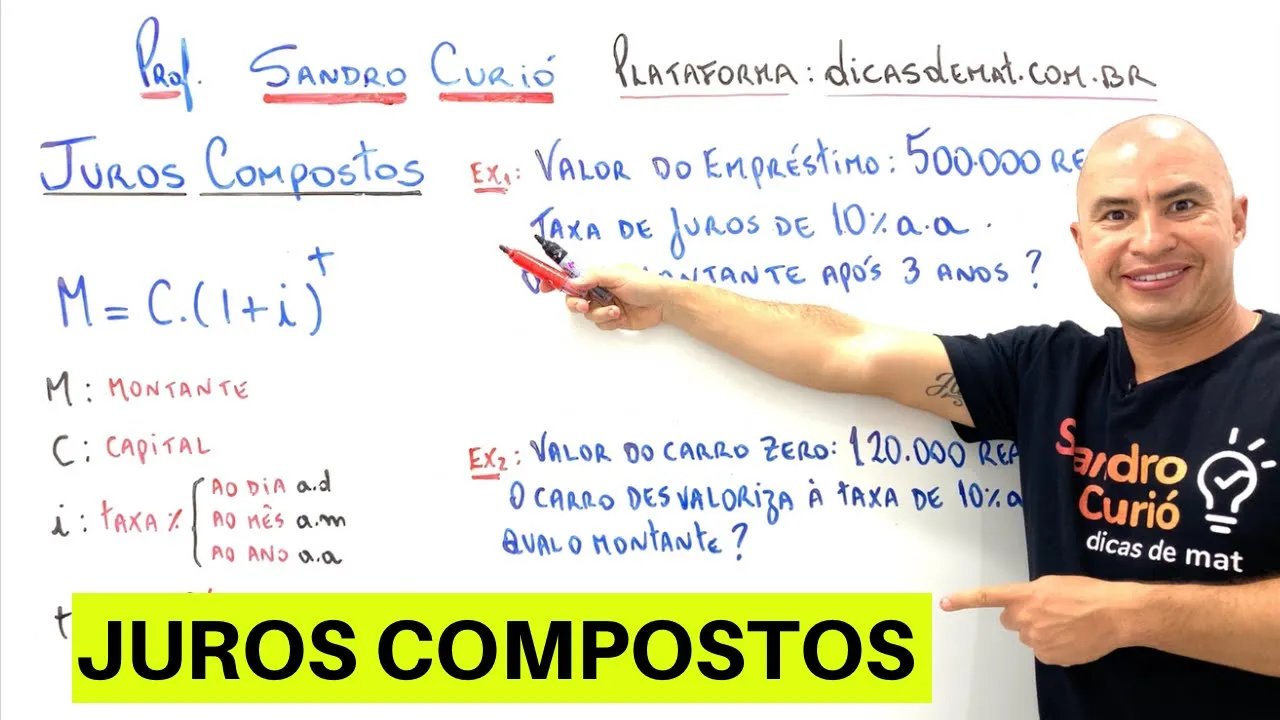 Prof. Sandro Curió Plataforma: dicasdemat.com.br
Juros Compostos
M = C.(1+i)^t
M: Montante
C: Capital
i: taxa %
ao dia a.d
ao mês a.m
ao ano a.a
t
Ex1: Valor do Empréstimo: 500.000
Taxa de juros de 10% a.a.
após 3 anos?
Ex2: Valor do carro zero: 120.000
O carro desvaloriza à taxa de 10%
Qual o montante?
Sandro
Curió
dicas de mat
JUROS COMPOSTOS